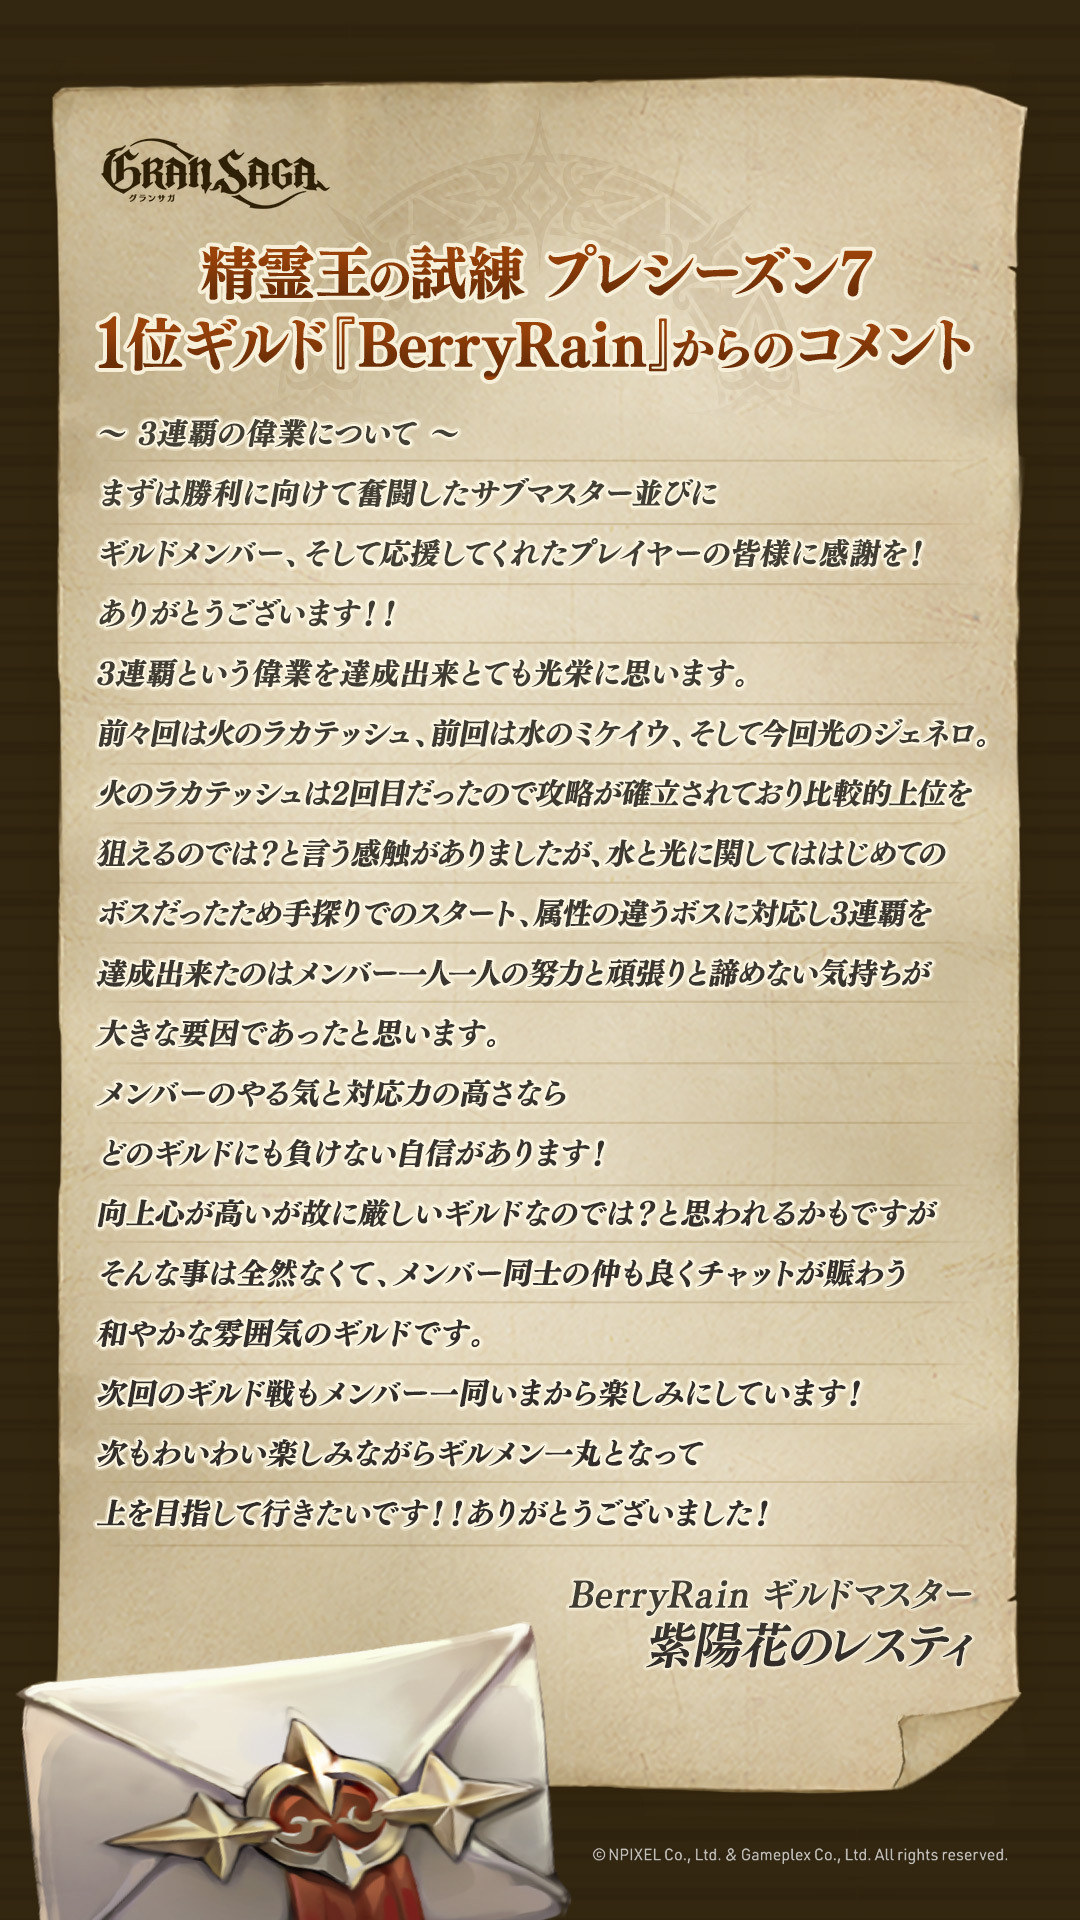 GRANSAGA
グランサガ
精霊王の試練 プレシーズン7
1位ギルド『BerryRain』からのコメント
～ 3連覇の偉業について ～
まずは勝利に向けて奮闘したサブマスター並びに
ギルドメンバー、そして応援してくれたプレイヤーの皆様に感謝を！
ありがとうございます！！
3連覇という偉業を達成出来とても光栄に思います。
前々回は火のラカテッシュ、前回は水のミケイウ、そして今回光のジェネロ。
火のラカテッシュは2回目だったので攻略が確立されており比較的上位を
狙えるのでは？と言う感触がありましたが、水と光に関してははじめての
ボスだったため手探りでのスタート、属性の違うボスに対応し3連覇を
達成出来たのはメンバー一人一人の努力と頑張りと諦めない気持ちが
大きな要因であったと思います。
メンバーのやる気と対応力の高さなら
どのギルドにも負けない自信があります！
向上心が高いが故に厳しいギルドなのでは？と思われるかもですが
そんな事は全然なくて、メンバー同士の仲も良くチャットが賑わう
和やかな雰囲気のギルドです。
次回のギルド戦もメンバー一同いまから楽しみにしています！
次もわいわい楽しみながらギルメン一丸となって
上を目指して行きたいです！！ありがとうございました！
BerryRain ギルドマスター
紫陽花のレスティ
© NPIXEL Co., Ltd. & Gameplex Co., Ltd. All rights reserved.